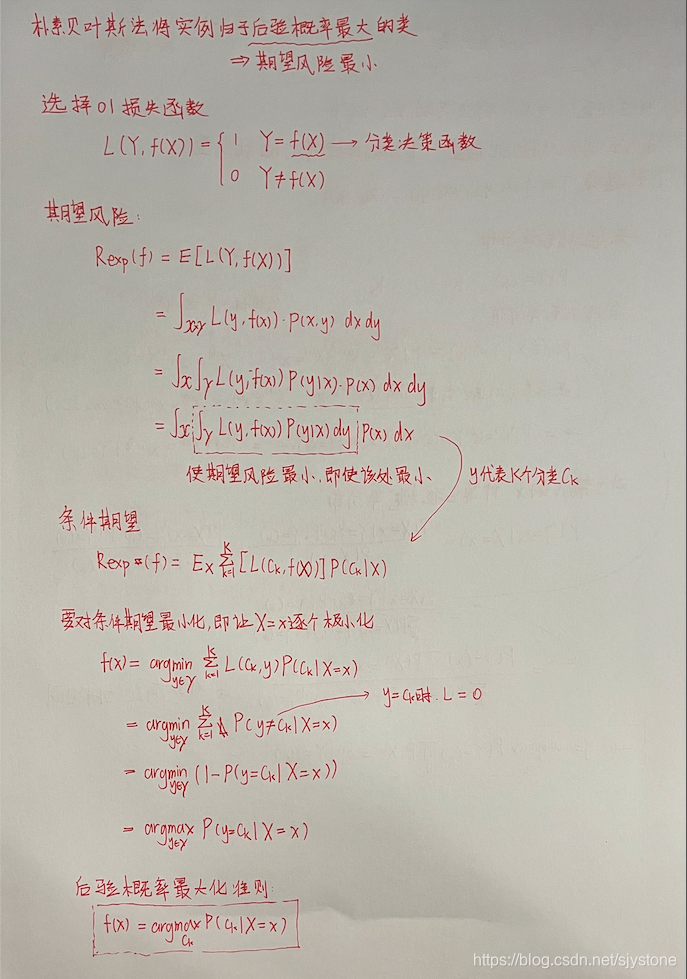 朴素贝叶斯法将实例归于后验概率最大的类
⇒ 期望风险最小
选择01损失函数
L(Y, f(X)) = { 1 Y = f(X) → 分类决策函数
0 Y ≠ f(X)
期望风险:
Rexp(f) = E[L(Y, f(X))]
= ∫x×y L(y, f(x)) · P(x,y) dx dy
= ∫x ∫y L(y, f(x)) P(y|x) · P(x) dx dy
= ∫x ∫y L(y, f(x)) P(y|x) dy P(x) dx
使期望风险最小,即使该处最小
y代表K个分类Ck
条件期望
Rexp(f) = Ex Σ k=1 K [L(Ck, f(X))] P(Ck|X)
要对条件期望最小化,即让X=x逐个极小化
f(x) = argmin y∈Y Σ k=1 K L(Ck, y) P(Ck|X=x)
y=Ck时. L = 0
= argmin y∈Y Σ k=1 K P(y≠Ck|X=x)
= argmin y∈Y (1-P(y=Ck|X=x))
= argmax y∈Y P(y=Ck|X=x)
后验概率最大化准则:
f(x) = argmax Ck P(Ck|X=x)
https://blog.csdn.net/sjystone